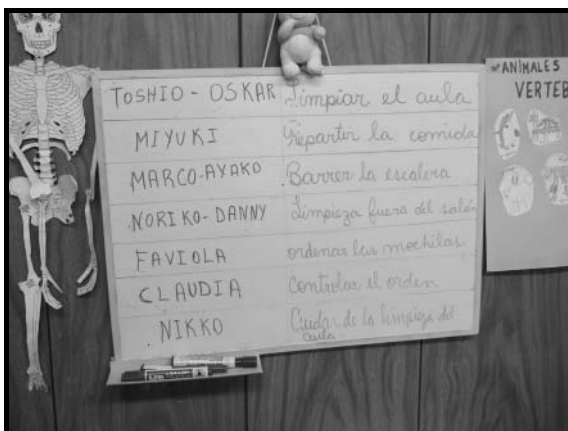 TOSHIO - OSKAR Limpiar el aula
MIYUKI Repartir la comida
MARCO-AYAKO Barrer la escalera
NORIKO-DANNY Limpieza fuera del salón
FAVIOLA ordenar las mochilas
CLAUDIA Controlar el orden
NIKKO Cuidar de la limpieza del
aula
ANIMALES
VERTEB